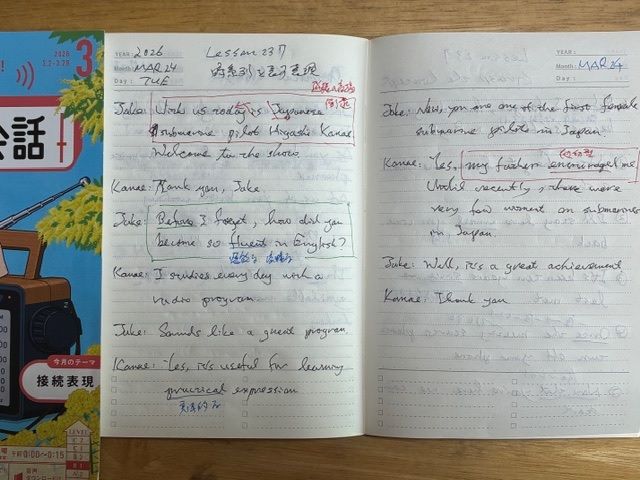 2026
3
3.2-3.28
会話
今月のテーマ
接続表現
LEVEL
午前0:00~0:15
YEAR: 2026
Month: MAR 24
Day: TUE
Lesson 237
時系列を表す表現
倒置
Jake: With us today is Japanese
submarine pilot Hiyashi Kanae.
Welcome to the show.
Kanae: Thank you, Jake.
Jake: Before I forget, how did you
become so fluent in English?
Kanae: I studies every day with a
radio program.
Jake: Sounds like a great program.
Kanae: Yes, it's useful for learning
practical expression
実践的な
YEAR:
Month: MAR 24
Day:
Jake: Now, you are one of the first female
submarine pilots in Japan.
Kanae: Yes, my father encouraged me
Until recently, there were
very few woment on submarines
in Japan.
Jake: Well, it's a great achievement.
Kanae: Thank you